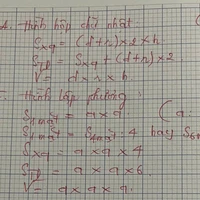 1. Hình hộp chữ nhật:
Sxq = (d+r)x2xh
Stp = Sxq + (d+r)x2
V = d x r x h
Hình lập phương:
S1mặt = a x a (a:
S4mặt = S1mặt . 4 hay S6m
Sxq = a x a x 4
Stp = a x a x 6
V = a x a x a.